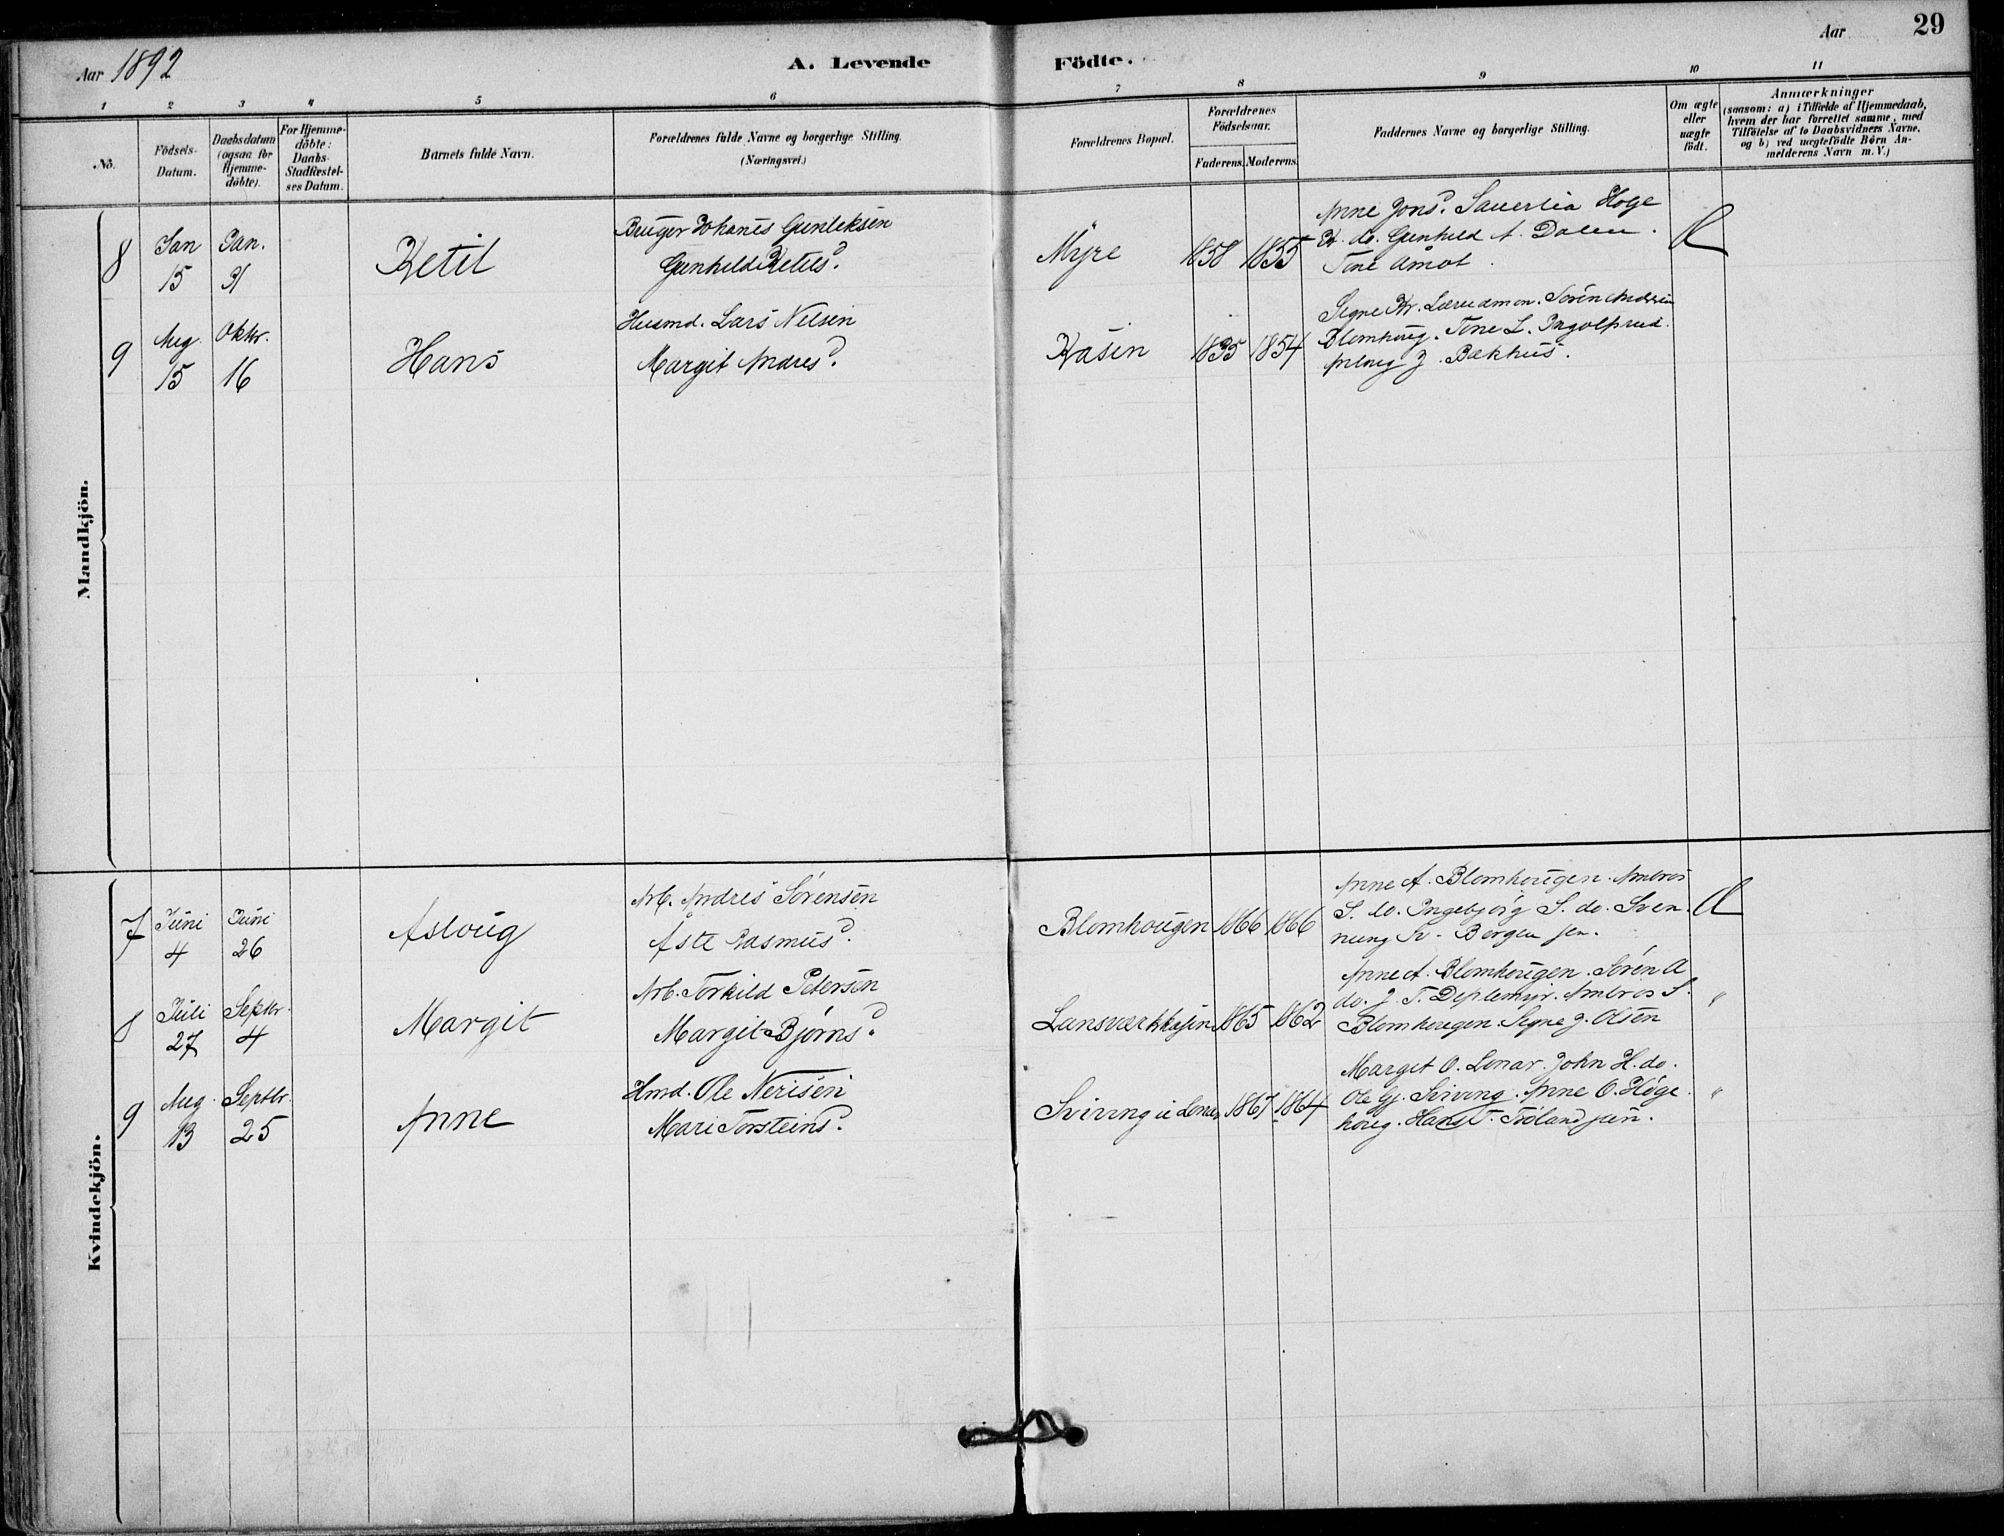 Aar 1892
A. Levende Födte.
Aar
29
1 2 3 4 5 6 7 8 9 10 11
No.
Födsels-Datum.
Daabsdatum (ogsaa for Hjemmedöbte).
For Hjemmedöbte: Daabs-Stadfæstelses Datum.
Barnets fulde Navn.
Forældrenes fulde Navne og borgerlige Stilling.
(Næringsvei.)
Forældrenes Bopæl.
Forældrenes Födselsaar.
Faderens. Moderens.
Faddernes Navne og borgerlige Stilling.
Om ægte eller uægte födt.
Anmærkninger
(saasom: a) i Tilfælde af Hjemmedaab,
hvem der har forrettet samme, med
Tilföielse af to Daabsvidners Navne,
og b) ved uægtefödte Børn An-
melderens Navn m. V.)
Mandkjön.
8 Jan 15 Jan. 31 Ketil
Bruger Johanes Gunleksen
Gunhild Ketilsd.
Myre 1858 1855
Anne Jonsd. Sauerlia Hoge
Kr. do. Gunhild A. Dalen.
Tone Åmot.
9 Aug. 15 Oktbr. 16 Hans
Husmd. Lars Nilsen
Margit Andresd.
Kåsin 1835 1854
Signe Kr. Sören Andersen
Blomhoug. Tone L.
Asloug J. Bækhus.
Kvindekjön.
7 Juni 4 Juni 26 Asloug
Arb. Andres Sørensen
Åste Rasmusd.
Blomhougen 1866 1866
Anne A. Blomhougen. Ambros
S. do. Ingebjörg S. do. Sven-
nung Sv. Bergen jun.
8 Juli 27 Septbr. 4 Margit
Arb. Torkild Petersen
Margit Bjørnsd.
Lunsværkkåsin 1865 1862
Anne A. Blomhougen. Sören A
do. J. T. Ambros S.
Blomhougen. Signe J. Olsen
"
9 Aug. 13 Septbr. 25 Anne
Hmd. Ole Nerisen
Mari Torsteinsd.
Sviving u Lonar 1867 1864
Margit O. Lonar. John H. do.
Ole Gj. Sviving. Anne O. Höge-
houg. Hans T. jun.
"